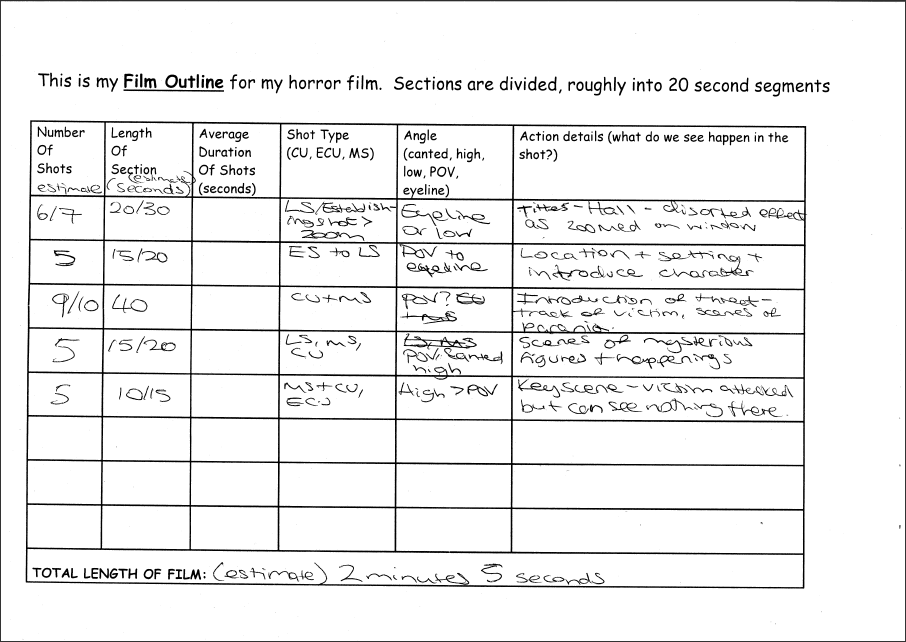 This is my Film Outline for my horror film. Sections are divided, roughly into 20 second segments
Number Of Shots estimate
Length Of Section (estimate) (seconds)
Average Duration Of Shots (seconds)
Shot Type (CU, ECU, MS)
Angle (canted, high, low, POV, eyeline)
Action details (what do we see happen in the shot?)
6/7
20/30
LS/Establish-
ing shot >
zoom
Eyeline
or low
Titles - Hall - disorted effect
as zoomed on window
5
15/20
ES to LS
POV to
eyeline
Location + setting +
introduce character
9/10
40
CU + MS
POV? CU
+ MS
Introduction of threat -
track of victim, scenes of
parania.
5
15/20
LS, MS,
CU
LS, MS
POV, canted
high
Scenes of mysterious
figures + happenings
5
10/15
MS + CU,
ECU
High > POV
Key scene - victim attacked
but can see nothing there.
TOTAL LENGTH OF FILM: (estimate) 2 minutes 5 seconds